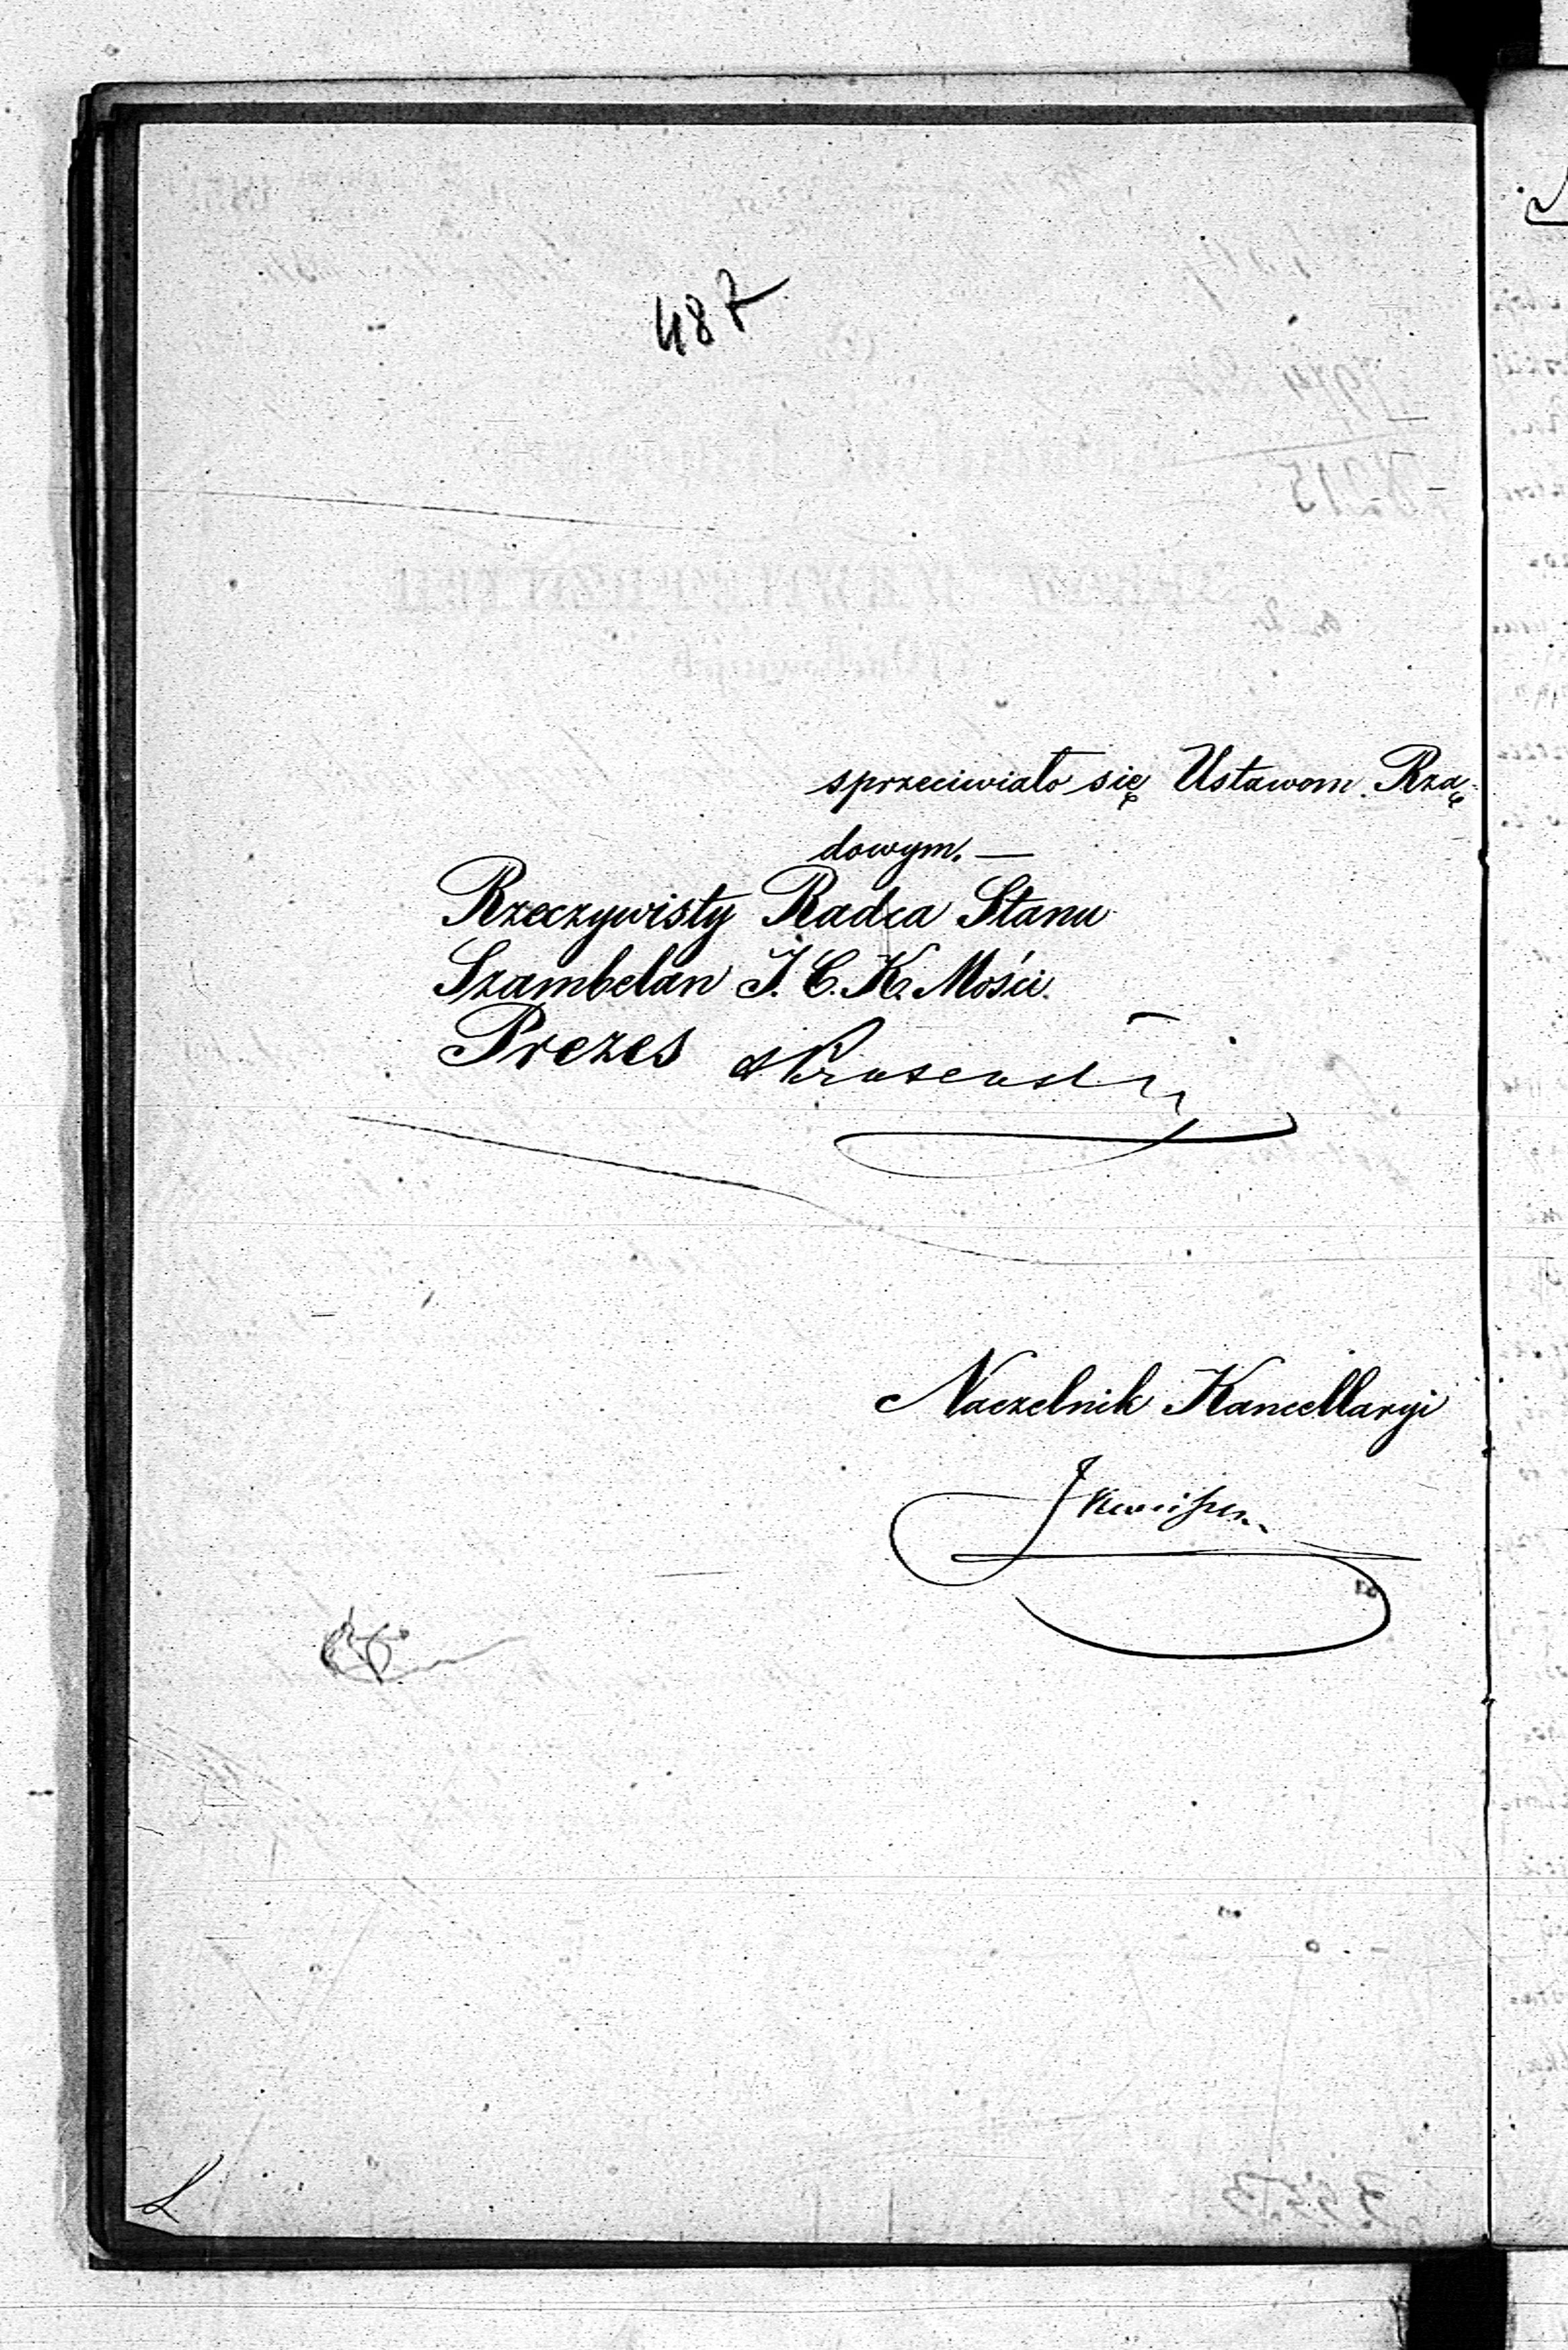 487
sprzeciwiało się Ustawom Rzą-
dowym. —
Rzeczywisty Radca Stanu
Szambelan J. C. K. Mości
Prezes
Naczelnik Kancellaryi
L